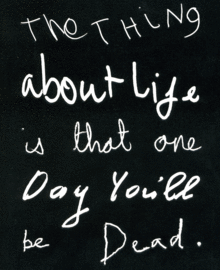 The THiNg
about Life
is that one
Day You'll
be Dead.